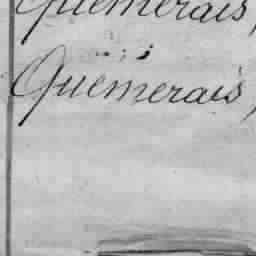 Quemerais,
Quemerais,